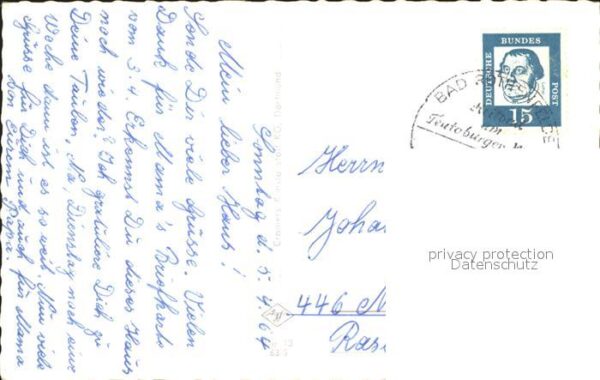 Sonntag d. 5. 4. 64
Mein lieber Hans!
Sende Dir viele Grüsse. Vielen
Dank für Mama's Briefkarte
vom 3. 4. Erkennst Du dieses Haus
noch wieder? Ich gratuliere Dich zu
Deine Tauben. Na, Dienstag noch eine
Woche dann ist es so weit. Nun viele
Grüsse für Dich und auch für Mama
von Deinen Papa
Cramers Kunstanstalt KG, Dortmund
DEUTSCHE BUNDES POST
15
BAD
Teutoburger
Herrn
Joha
446 N
Ras
privacy protection
Datenschutz